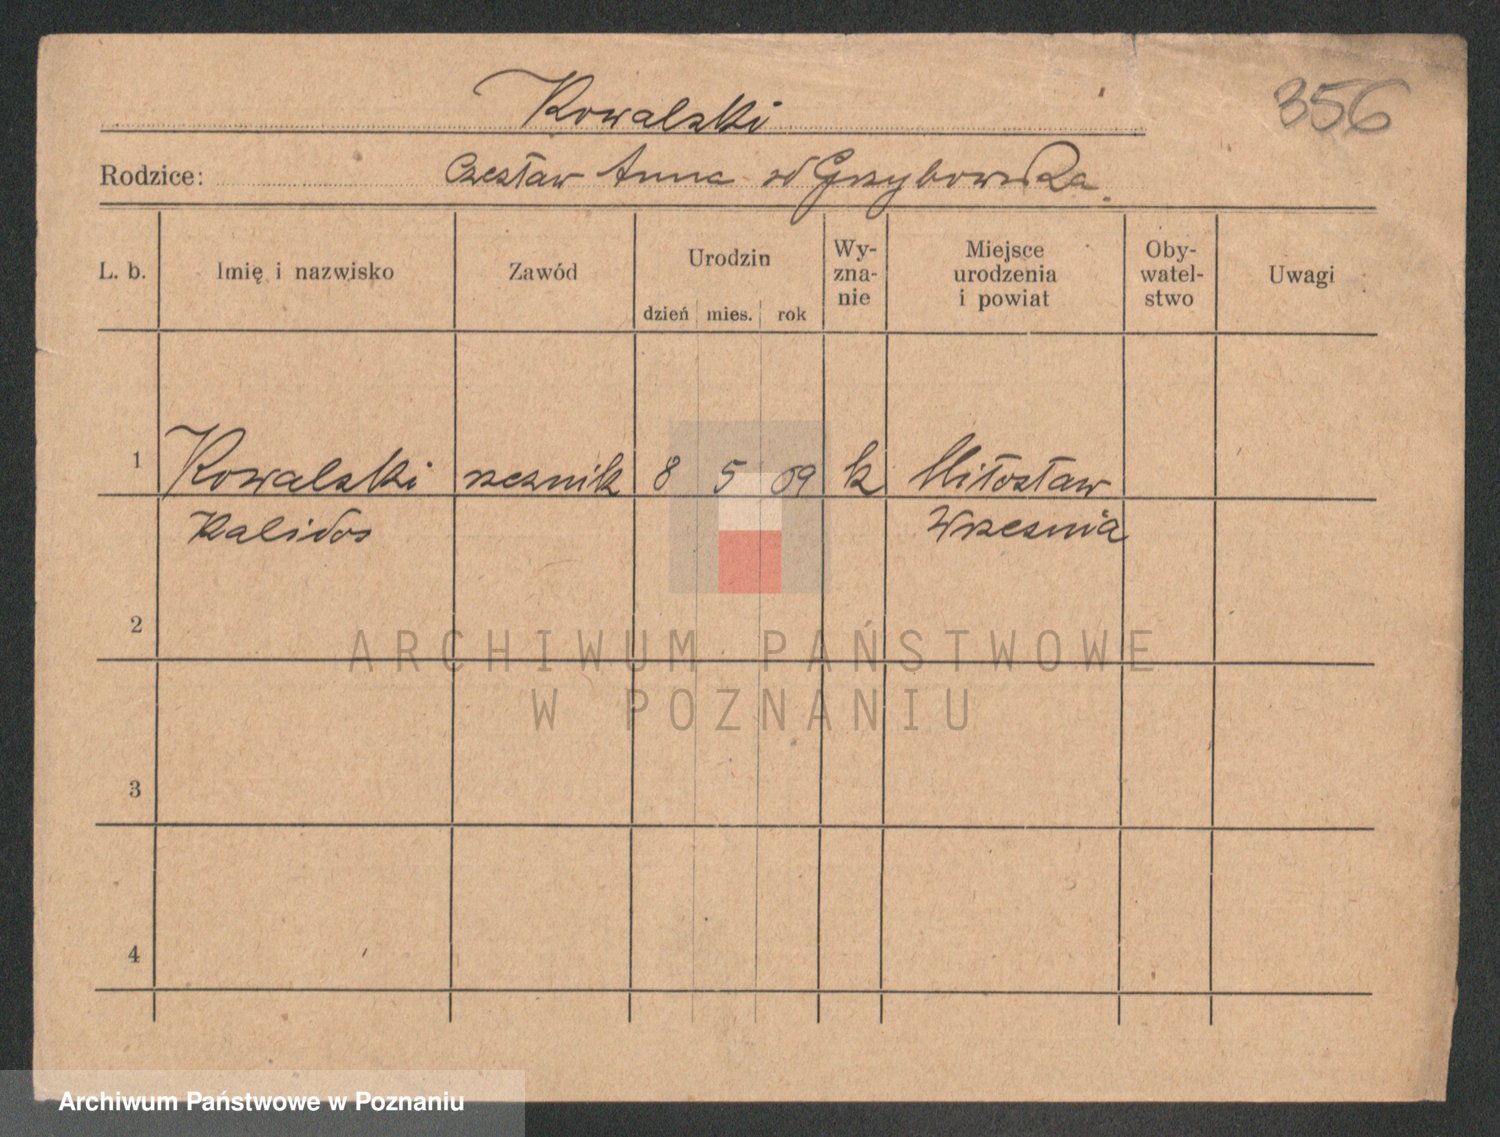 Kowalski
356
Rodzice: Czesław Anna sd Grzybowska
L. b. Imię i nazwisko Zawód Urodzin dzień mies. rok Wy-zna-nie Miejsce urodzenia i powiat Oby-watel-stwo Uwagi
1 Kowalski rzeznik 8 5 09 k Miłosław
Kalidos Wrzesnia
2
ARCHIWUM PAŃSTWOWE
W POZNANIU
3
4
Archiwum Państwowe w Poznaniu